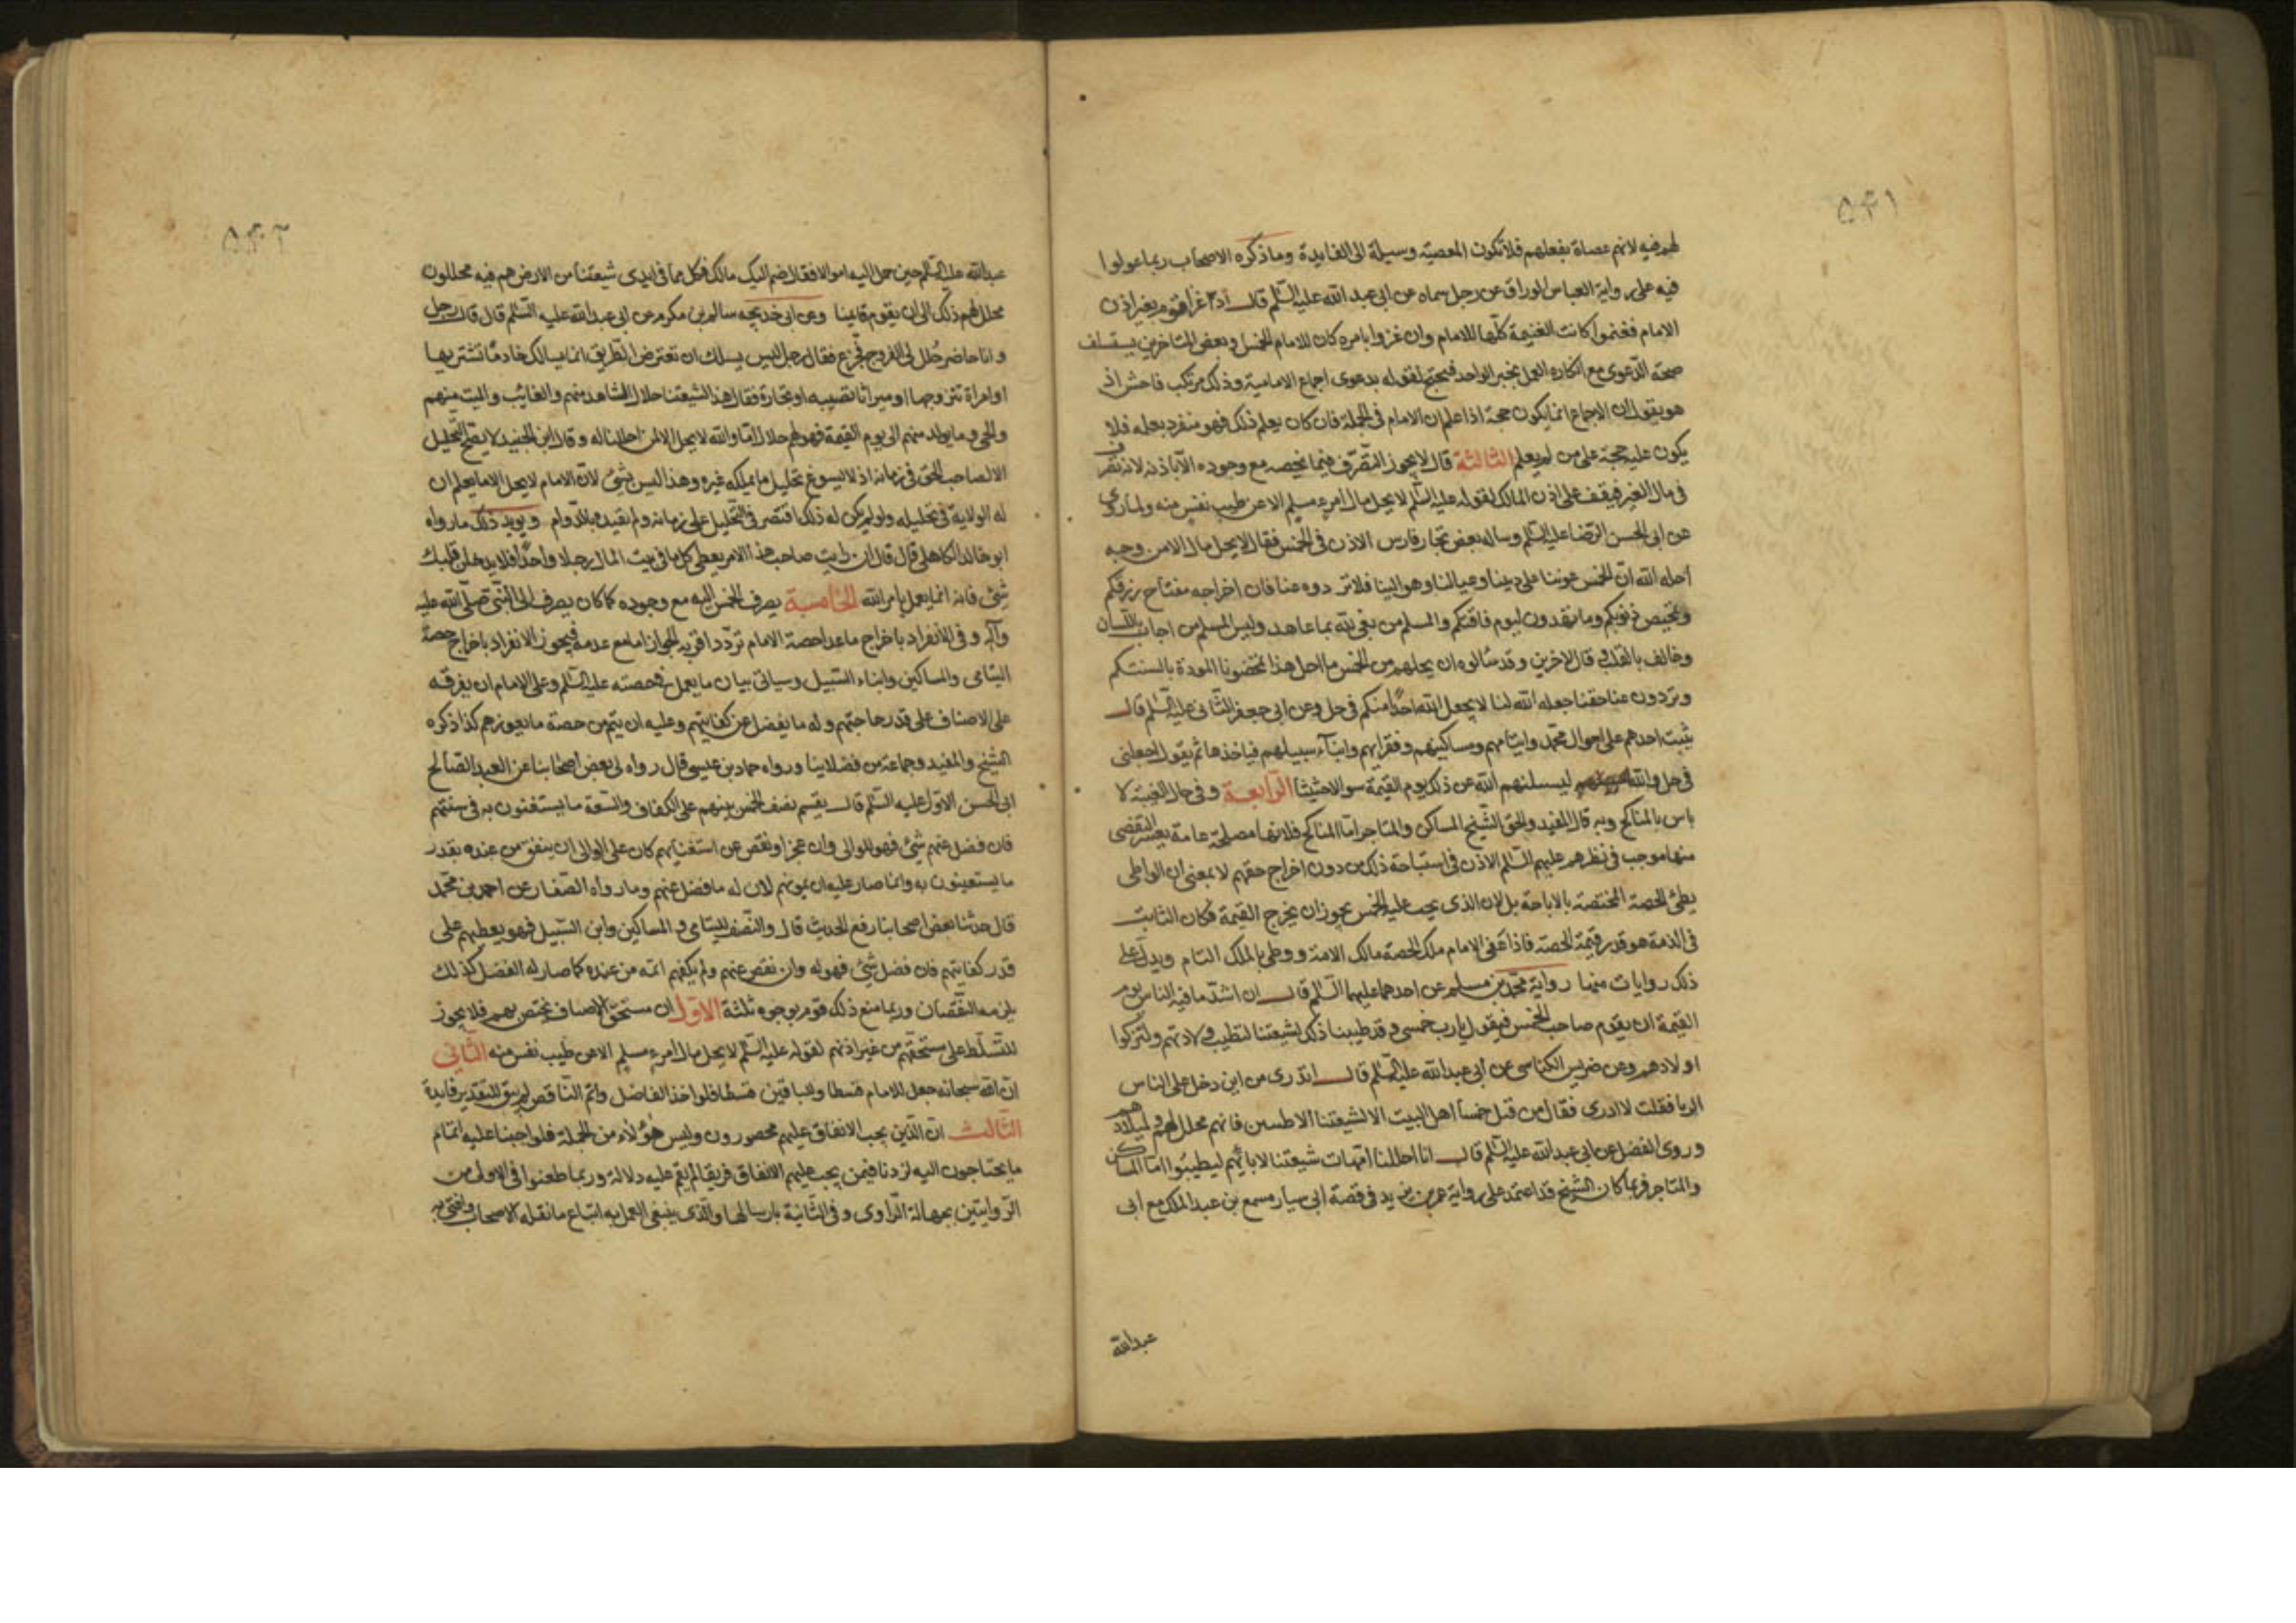 ۵۴۱
لهم فيه لانهم عصاة بفعلهم فلا تكون المعصية وسيلة الى الفايدة وما ذكره الاصحاب ربما عولوا
فيه على رواية العباس الوراق عن رجل سماه عن ابى عبد الله عليه السلم قال اذا غزا قوم بغير اذن
الامام فغنموا كانت الغنيمة كلها للامام وان غزوا بامره كان للامام الخمس وبعض المتاخرين يستسلف
صحة الدعوى مع انكاره العمل بخبر الواحد فيحتج لقوله بدعوى اجماع الامامية وذلك مرتكب فاحش اذ
هو يقول ان الاجماع انما يكون حجة اذا علم ان الامام فى الجملة فان كان يعلم ذلك فهو منفرد بعلمه فلا
يكون عليه حجة على من لم يعلم الثالثة قال لا يجوز التصرف فيما يخصه مع وجوده الا باذنه لانه تصرف
فى مال الغير فيقف على اذن المالك لقوله عليه السلم لا يحل مال امرء مسلم الا عن طيب نفس منه ولما روى
عن ابى الحسن الرضا عليه السلم وساله بعض تجار فارس الاذن فى الخمس فقال لا يحل مال الا من وجه
احله الله ان الخمس عوننا على ديننا وعيالنا وموالينا فلا تزووه عنا فان اخراجه مفتاح رزقكم
وتمحيص ذنوبكم وما تمهدون ليوم فاقتكم والمسلم من يفى لله بما عاهد وليس المسلم من اجاب باللسان
وخالف بالقلب وقال لاخرين وقد سالوه ان يحلهم من الخمس ما احل هذا تمحضونا المودة بالسنتكم
وتزوون عنا حقنا جعله الله لنا لا يجعل الله احدا منكم فى حل وعن ابى جعفر الثانى عليه السلم قال
يثبت احدهم على اموال محمد وايتامهم ومساكينهم وفقرائهم وابناء سبيلهم فياخذها ثم يقول اجعلنى
فى حل والله ليسئلنهم الله عن ذلك يوم القيمة سوالا حثيثا الرابعة وفى حال الغيبة لا
باس بالمناكح وبه قال المفيد والحق الشيخ المساكن والمتاجر اما المناكح فلانها مصلحة عامة يعسر التفصى
منها موجب فى نظرهم عليهم السلم الاذن فى استباحة ذلك من دون اخراج حقهم لا بمعنى ان الواطى
يطئ الحصة المختصة بالاباحة بل لان الذى يجب عليه الخمس يجوز ان يخرج القيمة فكان الثابت
فى الذمة هو قدر قيمة الحصة فاذا عفى الامام ملك الحصة مالك الامة ووطى بالملك التام ويدل على
ذلك روايات منها رواية محمد بن مسلم عن احدهما عليهما السلم قال ان اشد ما فيه الناس يوم
القيمة ان يقوم صاحب الخمس فيقول يارب خمسى وقد طيبنا ذلك لشيعتنا لتطيب ولادتهم ولتزكوا
اولادهم وعن ضريس الكناسى عن ابى عبدالله عليه السلم قال اتدرى من اين دخل على الناس
الزنا فقلت لا ادرى فقال من قبل خمسنا اهل البيت الا لشيعتنا الاطيبين فانهم محلل لهم ولميلادهم
وروى الفضل عن ابى عبدالله عليه السلم قال انا احللنا امهات شيعتنا لابائهم ليطيبوا اما المساكن
والمتاجر فربما كان الشيخ قد اعتمد على رواية عمر بن يزيد فى قصة ابى سيار مسمع بن عبد الملك مع ابى
عبدالله
۵۴۲
عبدالله عليه السلم حين حمل اليه اموالا فقال ضم اليك مالك فكل ما فى ايدى شيعتنا من الارض هم فيه محللون
محلل لهم ذلك الى ان يقوم قايمنا وعن ابى خديجه سالم بن مكرم عن ابى عبدالله عليه السلم قال قال رجل
وانا حاضر حلل لى الفروج ففزع فقال رجل ليس يسلك ان تعترض الطريق انما يسالك خادما تشتريها
او امراة تتزوجها او ميراثا تصيبه او تجارة فقال هذا لشيعتنا حلال الشاهد منهم والغائب والميت منهم
والحى وما يولد منهم الى يوم القيمة فهو لهم حلال اما والله لا يحل الا لمن احللنا له وقال ابن الجنيد لا يصح التحليل
الا لصاحب الحق فى زمانه اذ لا يسوغ تحليل ما يملكه غيره وهذا ليس بشئ لان الامام لا يحل الا ما يعلم ان
له الولاية فى تحليله ولو لم يكن له ذلك اقتصر فى التحليل على زمانه ولم يقيده بالدوام ويويد ذلك ما رواه
ابو خالد الكاهلى قال قال ان رايت صاحب هذا الامر يعطى كل ما فى بيت المال رجلا واحدا فلا يدخلن قلبك
شئ فانه انما يعمل بامر الله الخامسة يصرف الخمس اليه مع وجوده كما كان يصرف الى النبى صلى الله عليه
وآله وفى الانفراد باخراج ماعدا حصة الامام تردد اقربه الجواز اما مع عدمه فيجوز الانفراد باخراج حصة
اليتامى والمساكين وابناء السبيل وسياتى بيان ما يعمل بحصته عليه السلم وعلى الامام ان يفرقه
على الاصناف على قدر حاجتهم وله ما يفضل عن كفايتهم وعليه ان يتم من حصته ما يعوزهم كذا ذكره
الشيخ والمفيد وجماعة من فضلاينا ورواه حماد بن عيسى قال رواه لى بعض اصحابنا عن العبد الصالح
ابى الحسن الاول عليه السلم قال يقسم نصف الخمس بينهم على الكفاف والسعة ما يستغنون به فى سنتهم
فان فضل عنهم شئ فهو للوالى وان عجز او نقص عن استغنائهم كان على الوالى ان ينفق من عنده بقدر
ما يستغنون به وانما صار عليه ان يمونهم لان له ما فضل عنهم وما رواه الصفار عن احمد بن محمد
قال حدثنا بعض اصحابنا رفع الحديث قال والنصف لليتامى والمساكين وابن السبيل فهو يعطيهم على
قدر كفايتهم فان فضل شئ فهو له وان نقص عنهم ولم يكفهم اتمه من عنده كما صار له الفضل كذلك
يلزمه النقصان وربما منع ذلك قوم بوجوه ثلثة الاول ان مستحق الاصناف يختص بهم فلا يجوز
التسلط على مستحقهم من غير اذنهم لقوله عليه السلم لا يحل مال امرء مسلم الا عن طيب نفس منه الثانى
ان الله سبحانه جعل للامام قسطا وللباقين قسطا فلو اخذ الفاضل واتم الناقص لم يبق للتقدير فايدة
الثالث ان الذين يجب الانفاق عليهم محصورون وليس هؤلاء من الجملة فلو اوجبنا عليه اتمام
ما يحتاجون اليه لزدنا فيمن يجب عليهم الانفاق فريقا لم يقم عليه دلالة وربما طعنوا فى الاولى من
الروايتين بجهالة الراوى وفى الثانية بارسالها والذى ينبغى العمل به اتباع ما نقله الاصحاب وافتى به